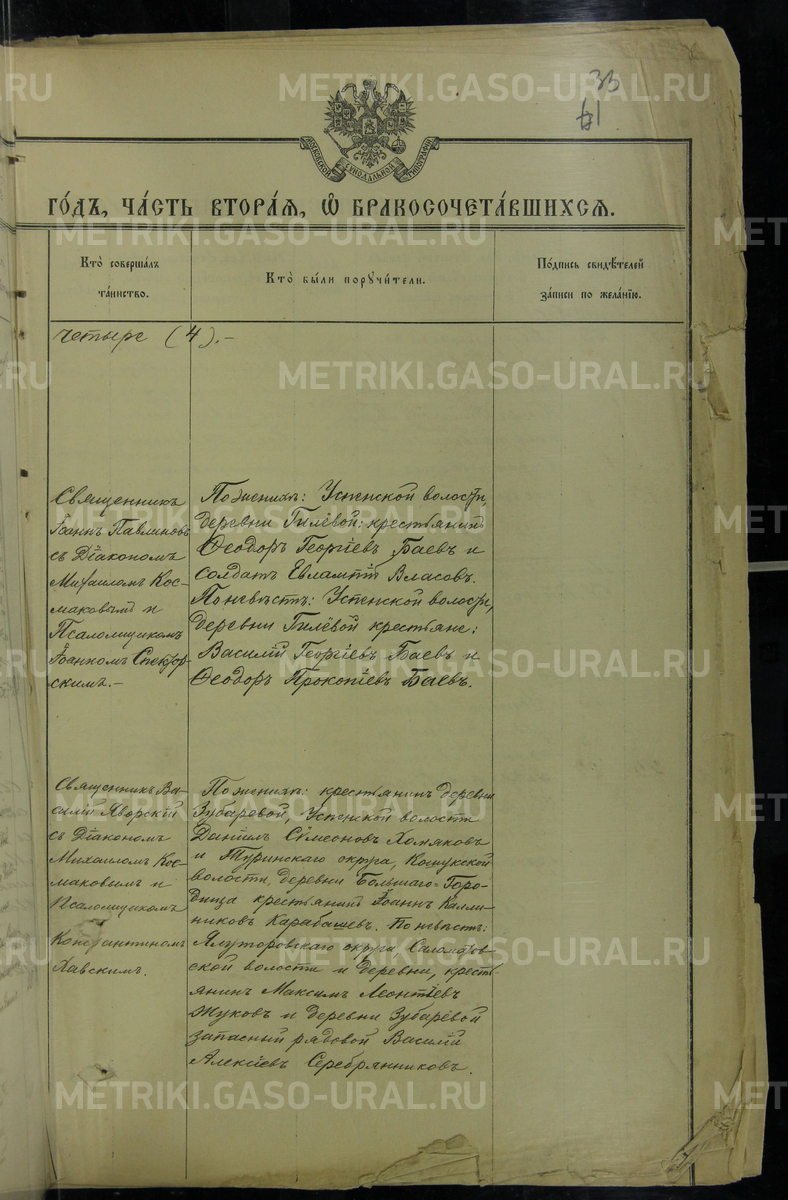 33
61
МОСКОВСКОЙ СѴНОДАЛЬНОЙ ТИПОГРАФІИ
ГО́ДЪ, ЧА́СТЬ ВТОРА́Ѧ, Ѽ БРАКОСОЧЕТА́ВШИХСѦ.
Кто̀ соверша́лъ
та́инство.
Кто̀ бы́ли порꙋчи́тели.
По́дпись свидѣ́телей
за́писи по жела́нїю.
четыре (4).-
Священникъ
Іоаннъ Павлиновъ
съ Діакономъ
Михаиломъ Кос-
маковымъ и
Псаломщикомъ
Іоанномъ Спектор-
скимъ.-
По женихѣ: Успенской волости,
деревни Гилёвой: крестьянинъ
Ѳеодоръ Георгіевъ Баевъ и
солдатъ Евлампій Власовъ.
По невѣстѣ: Успенской волости,
деревни Гилёвой крестьяне:
Василій Георгіевъ Баевъ и
Ѳеодоръ Прокопіевъ Баевъ.
Священникъ Ва-
силій Яворскій
съ Діакономъ
Михаиломъ Кос-
маковымъ и
Псаломщикомъ
Константиномъ
Хавскимъ.
По женихѣ: крестьянинъ деревни
Зубаревой, Успенской волости
Даніилъ Сѵмеоновъ Хомяковъ
и Туринскаго округа, Кошукской
волости, деревни Большаго-Горо-
дища крестьянинъ Іоаннъ Калли-
никовъ Карабашевъ. По невѣстѣ:
Ялуторовскаго округа Саламатов-
ской волости и деревни, кресть
янинъ Максимъ Леонтіевъ
Жуковъ и деревни Зубарёвой
запасный рядовой Василій
Алексіевъ Серебрянниковъ.
METRIKI.GASO-URAL.RU